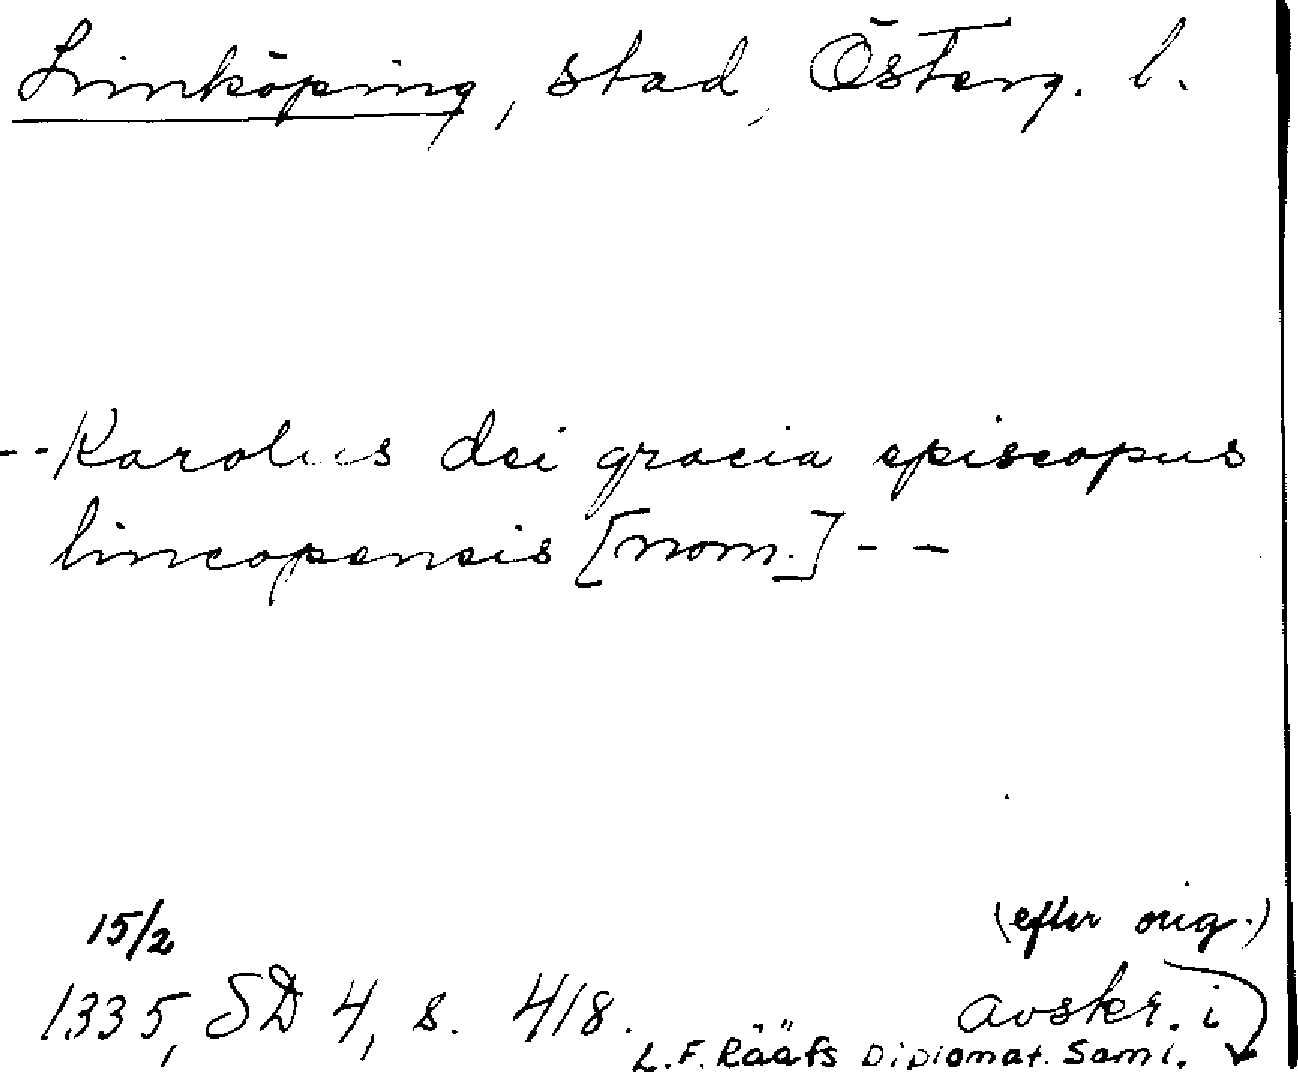 Linköping, stad, Österg. l.
--Karolus dei gracia episcopus
lincopensis [nom.] --
15/2
(efter orig.)
1335, SD 4, s. 418.
avskr. i
L.F. Rääfs Diplomat. Saml.